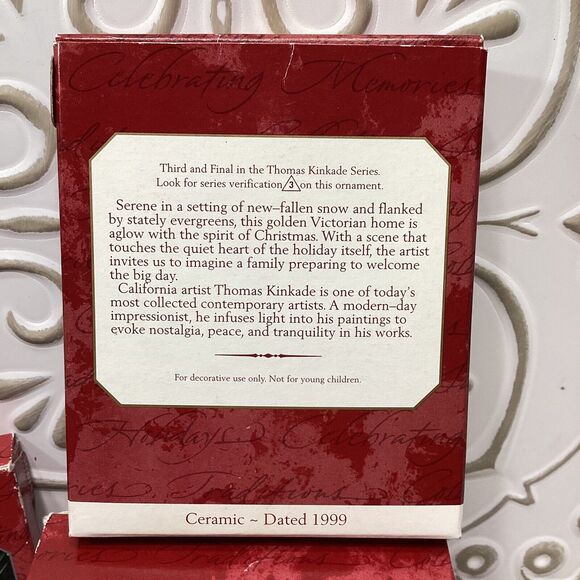 Celebrating Memories
Third and Final in the Thomas Kinkade Series.
Look for series verification 3 on this ornament.
Serene in a setting of new–fallen snow and flanked
by stately evergreens, this golden Victorian home is
aglow with the spirit of Christmas. With a scene that
touches the quiet heart of the holiday itself, the artist
invites us to imagine a family preparing to welcome
the big day.
California artist Thomas Kinkade is one of today's
most collected contemporary artists. A modern–day
impressionist, he infuses light into his paintings to
evoke nostalgia, peace, and tranquility in his works.
For decorative use only. Not for young children.
Holidays Celebrating
Memories Traditions
Ceramic ~ Dated 1999